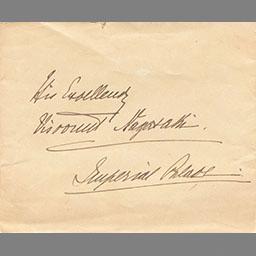 His Excellency
Viscount Nagasaki.
Imperial Palace.